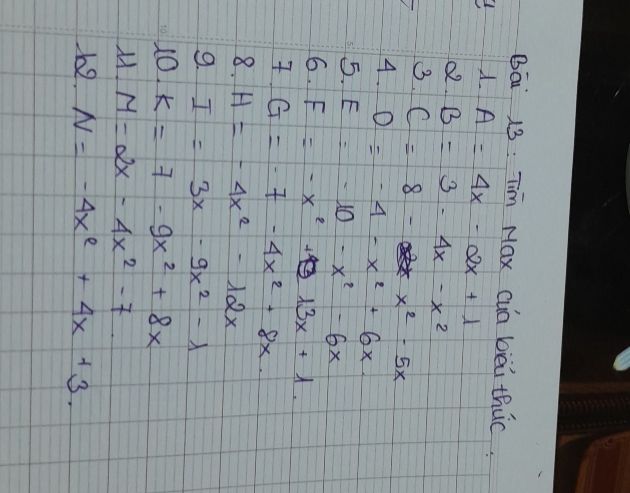 Bài 13: Tìm Max của biểu thức.
1. A = 4x - 2x + 1
2. B = 3 - 4x - x²
3. C = 8 - x² - 5x
4. D = -4 - x² + 6x.
5. E = -10 - x² - 6x
6. F = -x² + 13x + 1.
7. G = -7 - 4x² + 8x.
8. H = -4x² - 12x
9. I = 3x - 9x² - 1
10. K = 7 - 9x² + 8x
11. M = 2x - 4x² - 7.
12. N = -4x² + 4x + 3.